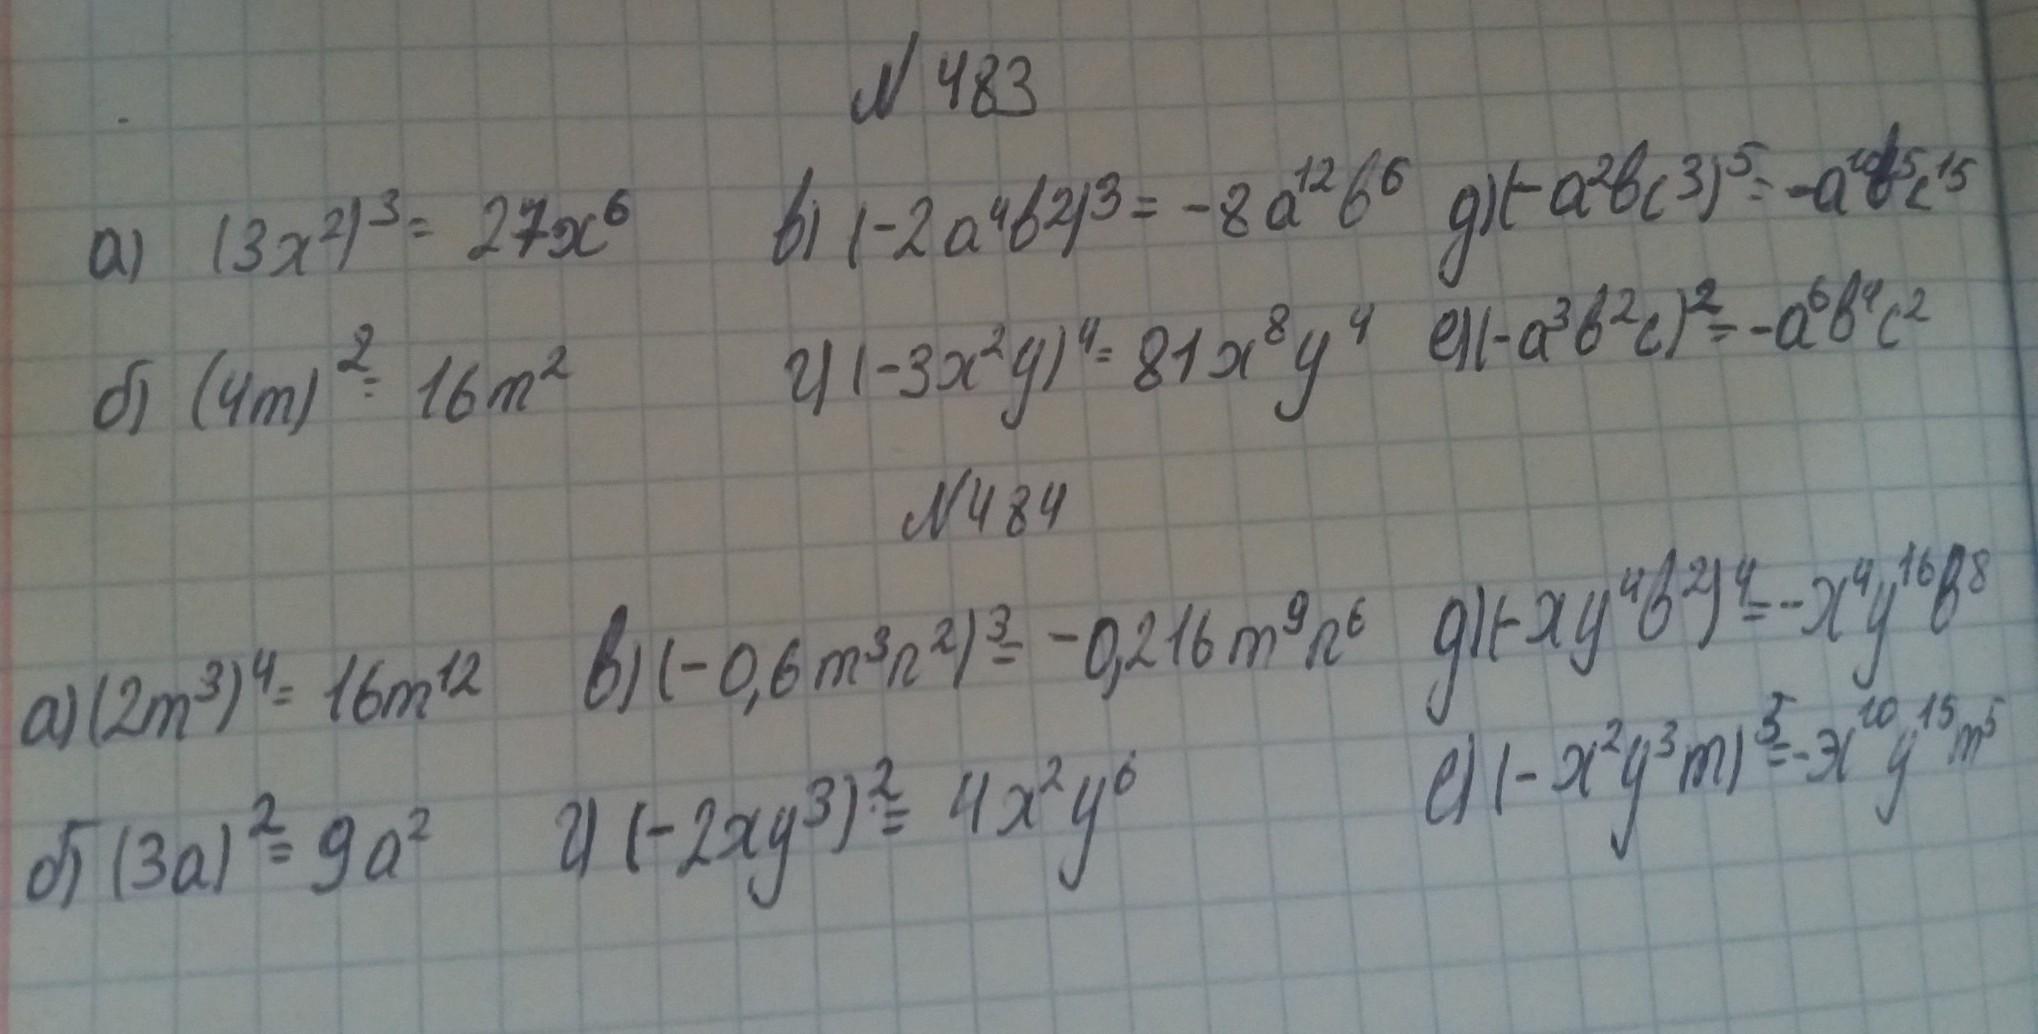 № 483
а) (3x²)³ = 27x⁶ в) (-2a⁴b²)³ = -8a¹²b⁶ д) (-a²bc³)⁵ = -a¹⁰b⁵c¹⁵
б) (4m)² = 16m² г) (-3x²y)⁴ = 81x⁸y⁴ е) (-a³b²c)² = -a⁶b⁴c²
№ 484
а) (2m³)⁴ = 16m¹² в) (-0,6m³n²)³ = -0,216m⁹n⁶ д) (-xy⁴b²)⁴ = -x⁴y¹⁶b⁸
б) (3a)² = 9a² г) (-2xy³)² = 4x²y⁶ е) (-x²y³m)⁵ = -x¹⁰y¹⁵m⁵